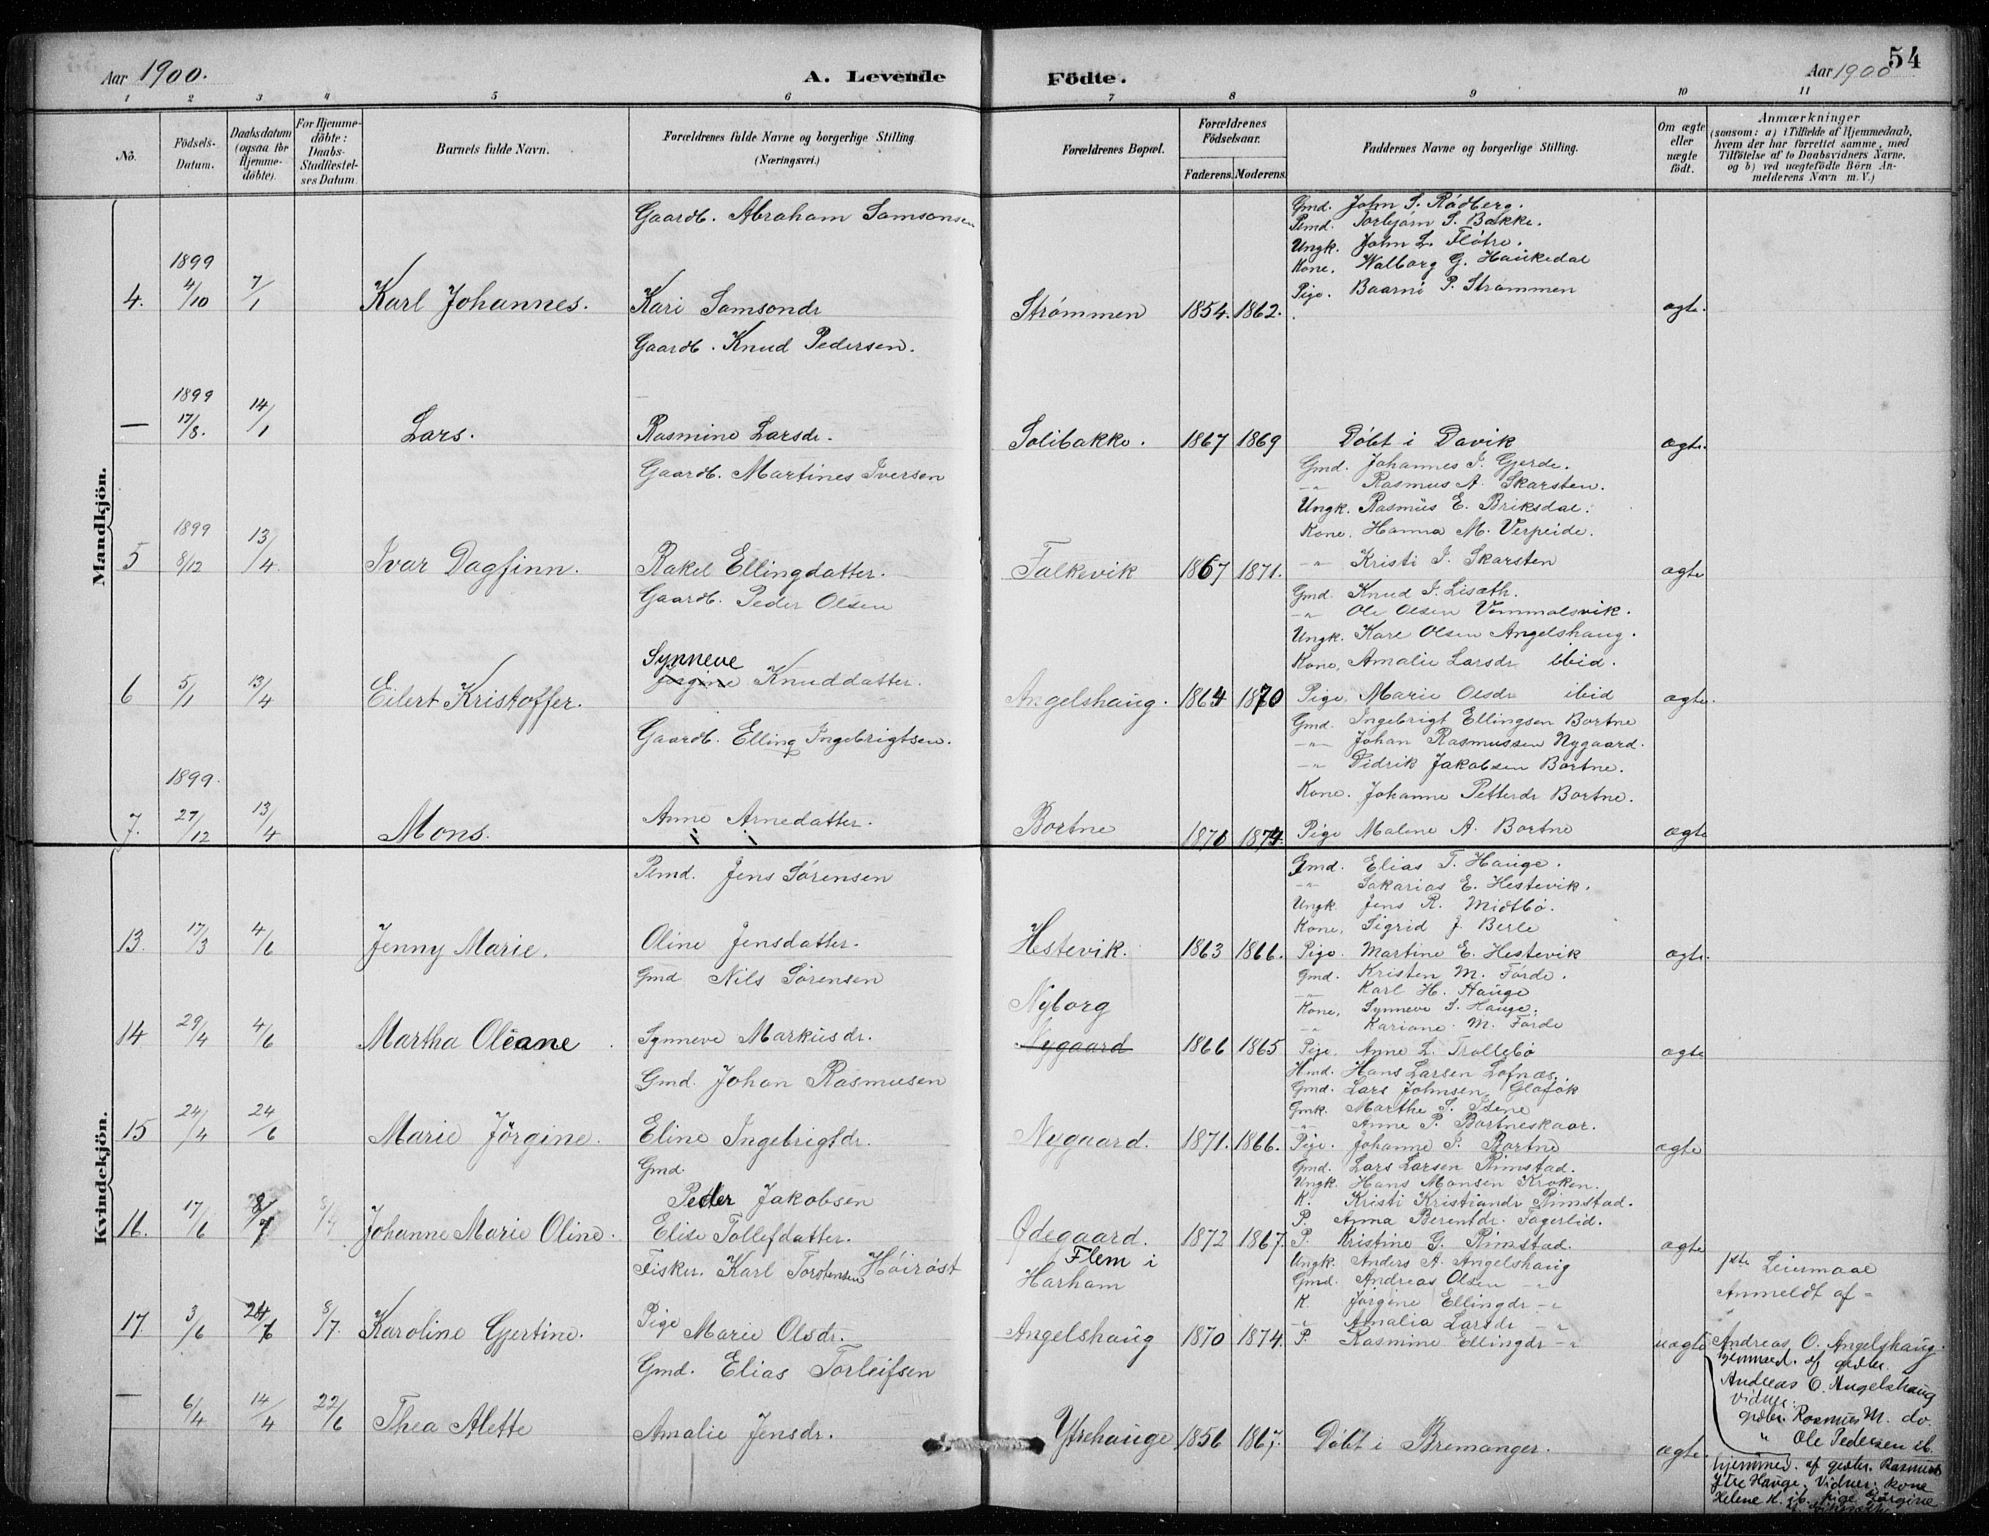 54
Aar 1900.
A. Levende Födte.
Aar 1900
1 2 3 4 5 6 7 8 9 10 11
No.
Födsels-Datum.
Daabsdatum (ogsaa for Hjemme-döbte).
For Hjemme-döbte: Daabs-Stadfæstel-ses Datum.
Barnets fulde Navn.
Forældrenes fulde Navne og borgerlige Stilling (Næringsvei.)
Forældrenes Bopæl.
Forældrenes Födselsaar.
Faderens. Moderens.
Faddernes Navne og borgerlige Stilling.
Om ægte eller uægte födt.
Anmærkninger
(saasom: a) i Tilfælde af Hjemmedaab,
hvem der har forrettet samme, med
Tilföielse af to Daabsvidners Navne,
og b) ved uægtefödte Börn An-
melderens Navn m. V.)
Mandkjön.
Gaardb. Abraham Samsonsen
Gmd. John S. Rødberg.
Pmd. Torbjørn S. Bakke.
Ungk. John L. Fløtre.
Kone. Walborg G. Haukedal
Pige. Baarni P. Strømmen
4. 1899 4/10 7/1 Karl Johannes. Kari Samsondr Strømmen 1854. 1862. ægte.
Gaardb. Knud Pedersen.
— 1899 17/8. 14/1 Lars. Rasmine Larsdr. Solibakke. 1867 1869 Døbt i Davik ægte.
Gaardb. Martines Iversen
Gmd. Johannes J. Gjerde.
-"- Rasmus A. Skarsten.
Ungk. Rasmus E. Briksdal.
Kone. Hanna M. Verpeide.
5 1899 8/12 13/4 Ivar Dagfinn. Rakel Ellingdatter. Falkevik 1867 1871. -"- Kristi J. Skarsten ægte
Gaardb. Peder Olsen
Gmd. Knud J. Lisæth.
-"- Ole Olsen Vemmelsvik.
Ungk. Karl Olsen Angelshaug.
Kone, Amalie Larsdr ibid.
Synneve
6 5/1 13/4 Eilert Kristoffer. Jørgine Knuddatter. Angelshaug. 1864 1870 Pige, Marie Olsdr ibid ægte.
Gaardb. Elling Ingebrigtsen.
Gmd. Ingebrigt Ellingsen Bortne
-"- Johan Rasmussen Nygaard.
-"- Didrik Jakobsen Bortne.
Kone. Johanne Petterdr Bortne.
7. 1899. 27/12 13/4 Mons. Anne Arnedatter. Bortne 1870 1874. Pige Malene A. Bortne ægte
Kvindekjön.
Pmd. Jens Sørensen
Gmd. Elias T. Hauge.
-"- Sakarias E. Hestevik.
Ungk. Jens R. Midtbø.
Kone, Sigrid J. Berle
13. 17/3 4/6 Jenny Marie. Oline Jensdatter. Hestevik. 1863 1866. Pige. Martine E. Hestevik ægte.
Gmd Nils Sørensen
Gmd. Kristen M. Førde.
-"- Karl H. Hauge
Kone, Synneve S. Hauge.
-"- Kariane M. Førde
Nyborg
14 29/4 4/6 Martha Oleane. Synneve Markusdr. Nygaard 1866 1865 Pige. Anne L. Trollebø ægte
Gmd. Johan Rasmusen
Hmd. Hans Larsen Lofnæs.
Gmd. Lars Johnsen Gloføk
Gmk. Marthe S. Isene
-"- Anne P. Bortneskaar.
15 24/4 24/6 Marie Jörgine. Eline Ingebrigtdr. Nygaard. 1871. 1866. Pige. Johanne S. Bortne ægte
Gmd. Peder Jakobsen
Gmd. Lars Larsen Rimstad.
Ungk. Hans Monsen Kroken.
K. Kristi Kristiandr Rimstad.
P. Anna Berentdr. Fagerlid.
16. 17/6 8/7 Johanne Marie Oline. Elise Tollefdatter. Ødegaard. 1872 1867. P. Kristine G. Rimstad. ægte
Fisker. Karl Torstensen Høirøst
Flem i Harham
Ungk. Anders A. Angelshaug
Gmd. Andreas Olsen -"-
K. Jørgine Ellingdr -"-
-"- Amalia Larsdr -"-
1ste Leiermaal
Anmeldt af =
17. 3/6 24/6 8/7. Karoline Gjertine. Pige Marie Olsdr. Angelshaug 1870 1874. P. Rasmine Ellingdr -"- uægte Andreas O. Angelshaug.
hjemmed. af grdbr.
Andreas O. Angelshaug
Vidner:
grdbr. Rasmus M. do.
" Ole Pedersen ib.
Gmd. Elias Torleifsen
— 6/4 14/4 22/6 Thea Alette Amalie Jensdr. Ytrehauge 1856 1867. Døbt i Bremanger. ægte.
hjemmed. af grdbr. Rasmus
Ytre Hauge. Vidner: kone
Helene H. ib. pige Jørgine